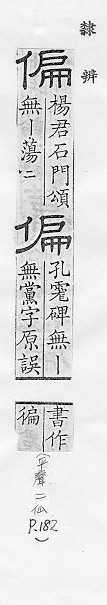 隸辨
偏楊君石門頌
無丨蕩二
偏孔寵碑無丨
無黨字原誤
書作
徧
(平聲二仙
P.182)